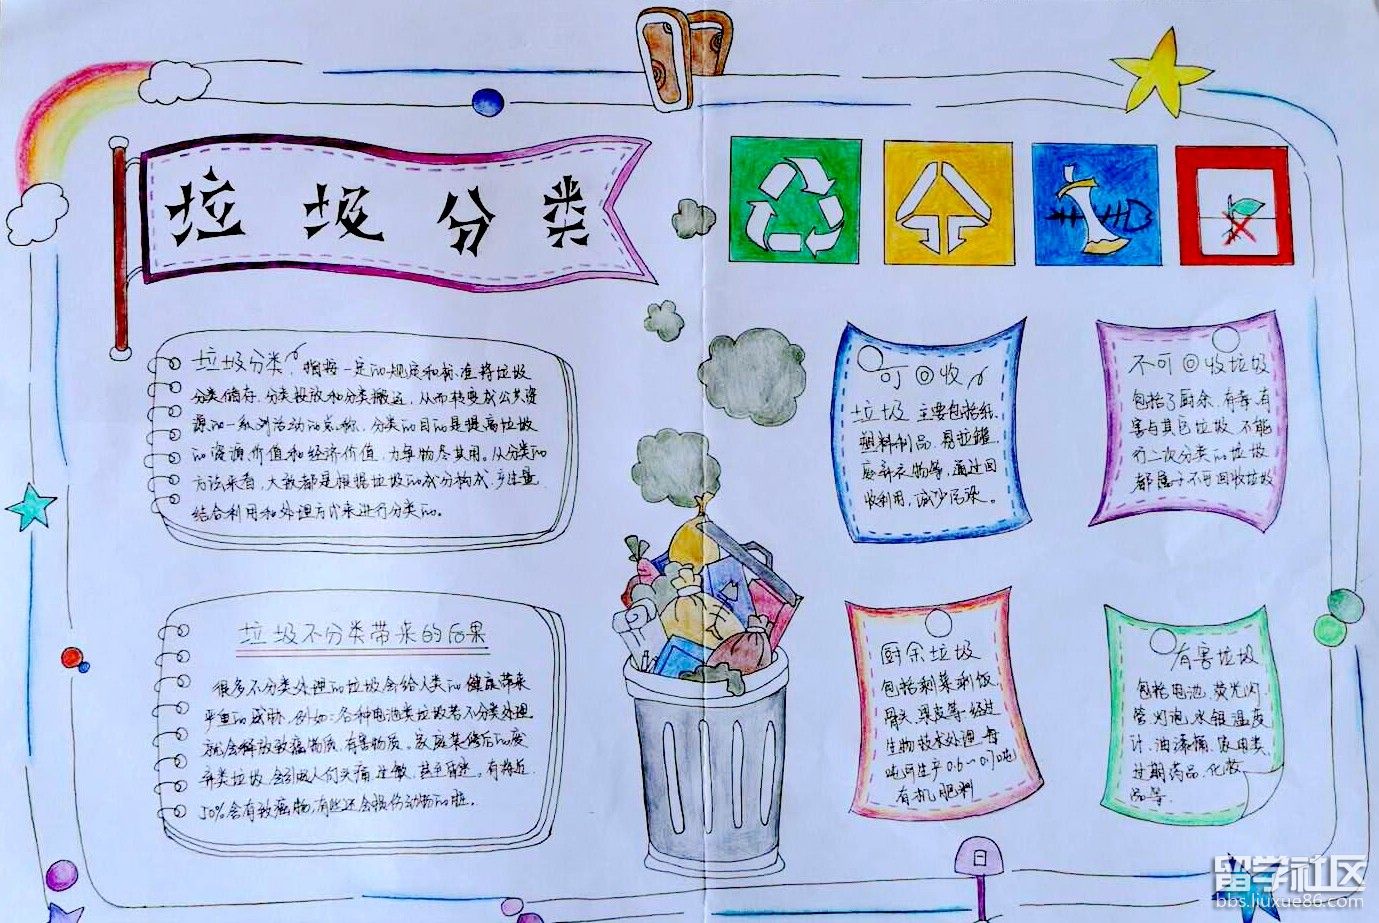 垃圾分类
垃圾分类，指按一定的规定和标准将垃圾
分类储存、分类投放和分类搬运，从而转变成公共资
源的一系列活动的总称，分类的目的是提高垃圾
的资源价值和经济价值，力争物尽其用。从分类的
方法来看，大致都是根据垃圾的成分构成、产生量，
结合利用和处理方式来进行分类的。
垃圾不分类带来的后果
很多不分类处理的垃圾会给人类的健康带来
严重的威胁，例如：各种电池类垃圾若不分类处理
就会释放致癌物质、有害物质。家庭装修后的废
弃类垃圾，会引起人们头痛、过敏，甚至昏迷。有将近
50%含有致癌物，有些还会损伤动物的脏。
可回收
垃圾 主要包括纸、
塑料制品、易拉罐、
废弃衣物等，通过回
收利用，减少污染。
不可回收垃圾
包括了厨余、有毒、有
害与其它垃圾，不能
行二次分类的垃圾
都属于不可回收垃圾
厨余垃圾
包括剩菜剩饭、
骨头、果皮等，经过
生物技术处理，每
吨可生产0.6~0.7吨
有机肥料
有害垃圾
包括电池、荧光灯
管、灯泡、水银温度
计、油漆桶、家用类、
过期药品、化妆
品等。
留学社区
bbs.liuxue86.com